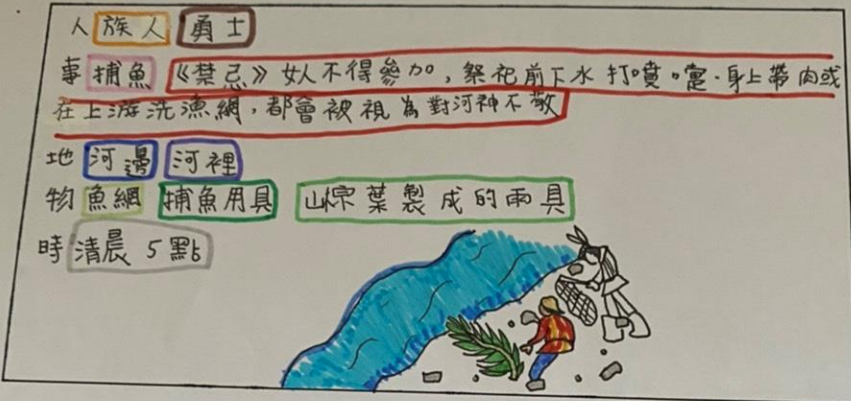 人 族人 勇士
事 捕魚 《禁忌》女人不得參加，祭祀前下水 打噴嚏．身上帶肉或
在上游洗漁網，都會被視為對河神不敬
地 河邊 河裡
物 魚網 捕魚用具 山棕葉製成的雨具
時 清晨 5點